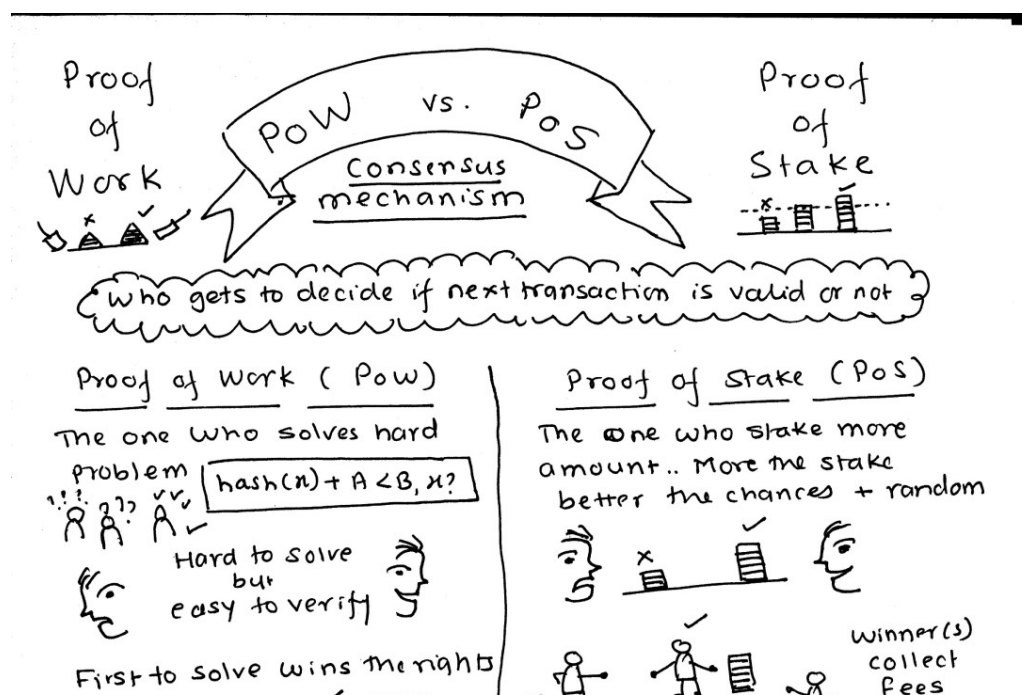 Proof
of
Work
PoW vs. PoS
Consensus
mechanism
Proof
of
Stake
who gets to decide if next transaction is valid or not
Proof of Work (PoW)
The one who solves hard
problem
hash(x) + A < B, x?
!?!? ???
Hard to solve
but
easy to verify
First to solve wins the rights
Proof of Stake (PoS)
The one who stake more
amount.. More the stake
better the chances + random
Winner(s)
collect
fees